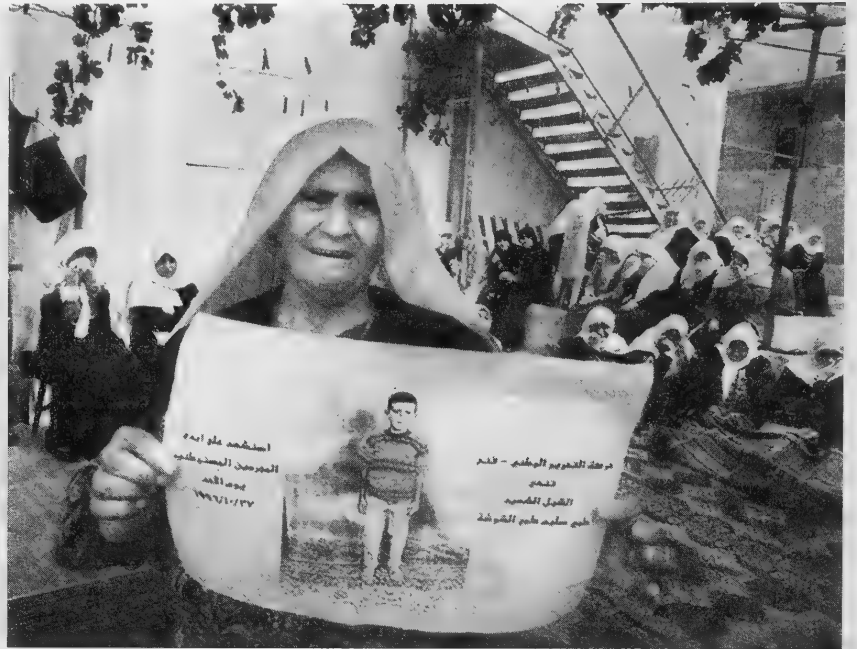 حركة التحرير الوطني - فتح
تنعى
الشبل الشهيد
سليم
استشهد على ايدي
المجرمين المستوطنين
يوم الاحد
١٩٩٦/١٠/٢٧